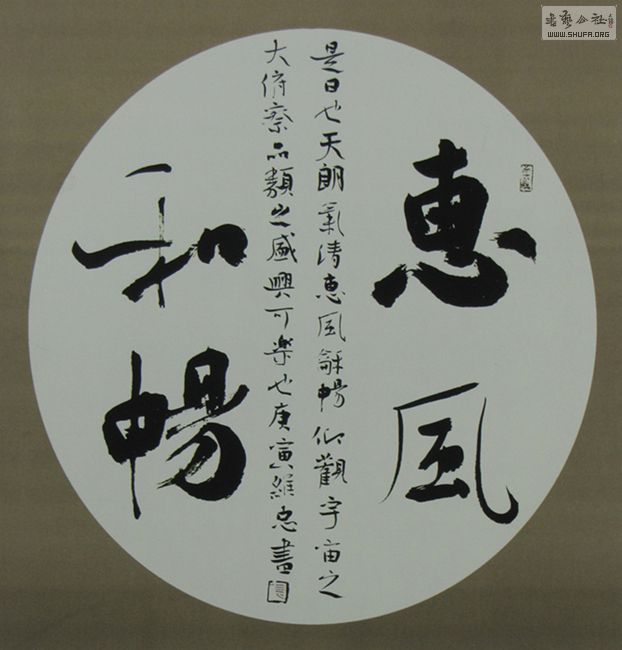 惠風
是日也天朗氣清惠風龢暢仰觀宇宙之
大俯察品類之盛興可樂也庚寅維忠書
和暢
書藝公社
WWW.SHUFA.ORG